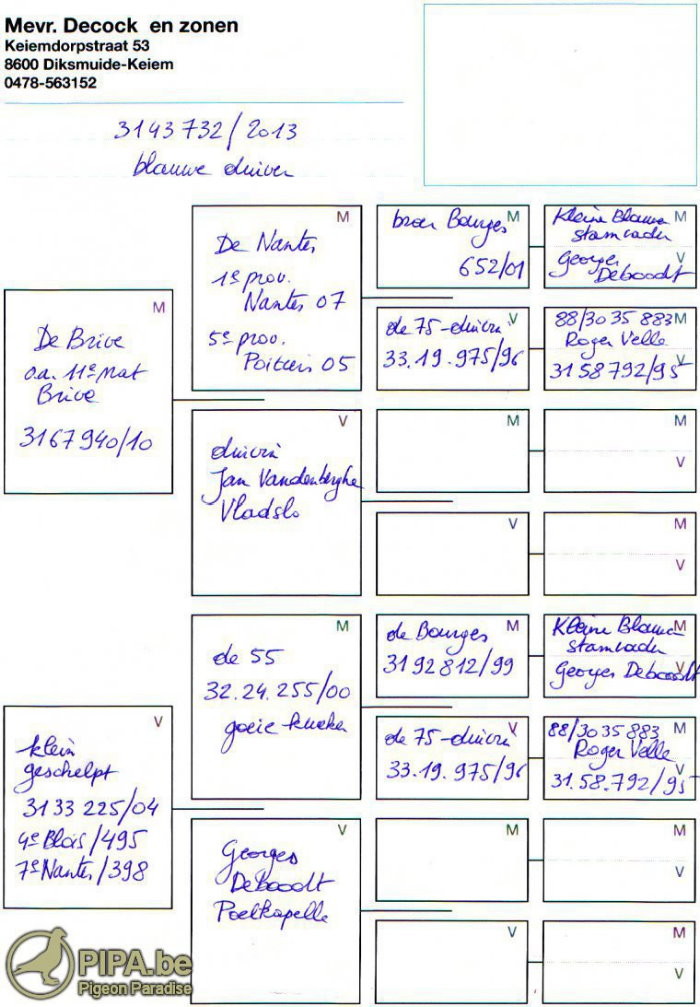 Mevr. Decock en zonen
Keiemdorpstraat 53
8600 Diksmuide-Keiem
0478-563152
3143732/2013
blauwe duiver
M
De Brive
o.a. 11e nat
Brive
3167940/10
V
klein
geschelpt
3133225/04
4e Blois/495
7e Nantes/398
M
De Nantes
1e prov.
Nantes 07
5e prov.
Poitiers 05
V
duivin
Jan Vandenberghe
Vladslo
M
de 55
32.24.255/00
goeie kweker
V
Georges
Deboodt
Poelkapelle
M
broer Bourges
652/01
V
de 75-duivin
33.19.975/96
M
V
M
de Bourges
3192812/99
V
de 75-duivin
33.19.975/96
M
V
M
Kleine Blauwe
stamvader
V
Georges
Deboodt
M
88/3035883
Roger Velle
V
3158792/95
M
V
M
V
M
Kleine Blauwe
stamvader
V
Georges Deboodt
M
88/3035883
Roger Velle
V
31.58.792/95
M
V
M
V
PIPA.be
Pigeon Paradise